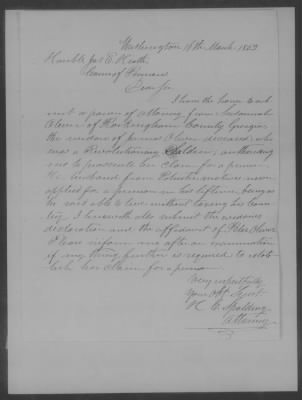 Washington 16th March 1853
Honble Jas E. Heath
Comr of Pensions
Dear Sir
I have the honor to sub
mit a power of attorney from Susannah
Oliver of Rockingham County Georgia
the widow of Oliver deceased who
was a Revolutionary Soldier, authorising
me to prosecute her claim for a pension
Her husband from never
applied for a pension in his lifetime being as
he was able to live without taxing his coun
try. I herewith also submit the widows
declaration and the affidavit of Peter Oliver
Please inform me after an examination
if any thing further is required to estab
lish her claim for a pension
Very respectfully
Your Obt Servt
H. C. Spalding
Attorney